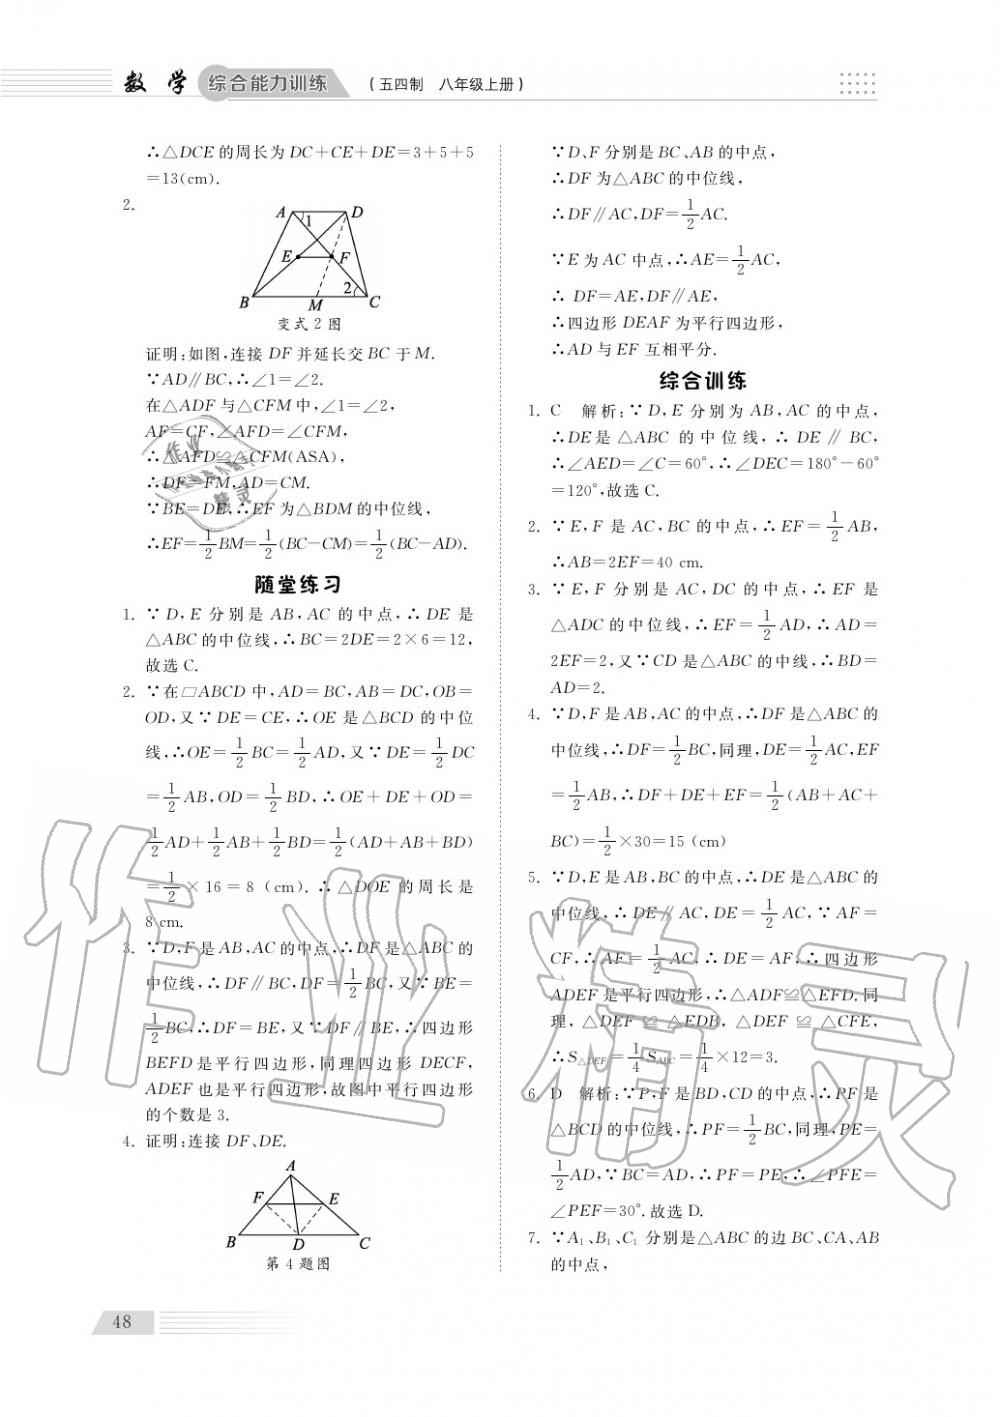 数 学 综合能力训练 (五四制 八年级上册)
∴△DCE 的周长为 DC+CE+DE=3+5+5
=13(cm).
2.
A D 1 E F 2 B M C
变式 2 图
证明:如图,连接 DF 并延长交 BC 于 M.
∵AD∥BC,∴∠1=∠2.
在△ADF 与△CFM 中,∠1=∠2,
AF=CF,∠AFD=∠CFM,
∴△AFD≌△CFM(ASA),
∴DF=FM,AD=CM.
∵BE=DE,∴EF 为△BDM 的中位线,
∴EF=1/2BM=1/2(BC−CM)=1/2(BC−AD).
随堂练习
1. ∵ D,E 分别是 AB,AC 的中点,∴ DE 是
△ABC 的中位线,∴BC=2DE=2×6=12,
故选 C.
2. ∵在□ABCD 中,AD=BC,AB=DC,OB=
OD,又∵ DE=CE,∴OE 是△BCD 的中位
线,∴OE=1/2BC=1/2AD,又∵DE=1/2DC
=1/2AB,OD=1/2BD,∴OE+DE+OD=
1/2AD+1/2AB+1/2BD=1/2(AD+AB+BD)
=1/2×16=8(cm).∴△DOE 的周长是
8 cm.
3. ∵D,F 是 AB,AC 的中点,∴DF 是△ABC 的
中位线,∴DF∥BC,DF=1/2BC,又∵BE=
1/2BC,∴DF=BE,又∵DF∥BE,∴四边形
BEFD 是平行四边形,同理四边形 DECF,
ADEF 也是平行四边形,故图中平行四边形
的个数是 3.
4. 证明:连接 DF、DE.
A F E B D C
第 4 题图
∵D、F 分别是 BC、AB 的中点,
∴DF 为△ABC 的中位线,
∴DF∥AC,DF=1/2AC.
∵E 为 AC 中点,∴AE=1/2AC,
∴ DF=AE,DF∥AE,
∴四边形 DEAF 为平行四边形,
∴AD 与 EF 互相平分.
综合训练
1. C 解析:∵ D,E 分别为 AB,AC 的中点,
∴DE 是 △ABC 的中位线,∴ DE∥BC,
∴∠AED=∠C=60°,∴∠DEC=180°−60°
=120°,故选 C.
2. ∵ E,F 是 AC,BC 的中点,∴EF=1/2AB,
∴AB=2EF=40 cm.
3. ∵ E,F 分别是 AC,DC 的中点,∴ EF 是
△ADC 的中位线,∴EF=1/2AD,∴AD=
2EF=2,又∵CD 是△ABC 的中线,∴BD=
AD=2.
4. ∵D,F 是 AB,AC 的中点,∴DF 是△ABC 的
中位线,∴DF=1/2BC,同理,DE=1/2AC,EF
=1/2AB,∴DF+DE+EF=1/2(AB+AC+
BC)=1/2×30=15(cm)
5. ∵D,E 是 AB,BC 的中点,∴DE 是△ABC 的
中位线,∴DE∥AC,DE=1/2AC,∵AF=
CF,∴AF=1/2AC,∴DE=AF,∴四边形
ADEF 是平行四边形,∴△ADF≌△EFD.同
理,△DEF≌△EDB,△DEF≌△CFE,
∴S△DEF=1/4S△ABC=1/4×12=3.
6. D 解析:∵P,F 是 BD,CD 的中点,∴PF 是
△BCD 的中位线,∴PF=1/2BC,同理,PE=
1/2AD,∵BC=AD,∴PF=PE,∴∠PFE=
∠PEF=30°.故选 D.
7. ∵A₁、B₁、C₁ 分别是△ABC 的边 BC、CA、AB
的中点,
48
作业精灵